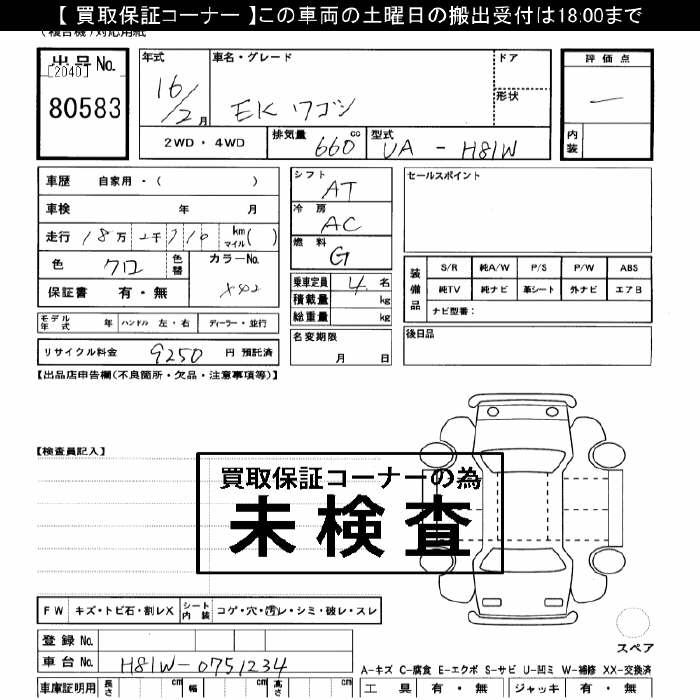 【 買取保証コーナー 】この車両の土曜日の搬出受付は18:00まで
(複合機)対応用紙
出品No.
[2040]
80583
年式
16/2月
車名・グレード
EK ワゴン
ドア
形状
2WD・4WD
排気量 660 cc
型式 UA - H81W
評価点
—
内装
車歴 自家用・( )
車検 年 月
走行 18万 2千 710 km マイル( )
色 クロ
色替
カラーNo. X42
保証書 有・無
シフト AT
冷房 AC
燃料 G
乗車定員 4 名
積載量 kg
総重量 kg
セールスポイント
装備品
S/R 純A/W P/S P/W ABS
純TV 純ナビ 革シート 外ナビ エアB
ナビ型番:
モデル年式 年 ハンドル 左・右 ディーラー・並行
名変期限
月 日
後日品
リサイクル料金 9250 円 預託済
【出品店申告欄(不良箇所・欠品・注意事項等)】
【検査員記入】
買取保証コーナーの為
未検査
FW キズ・トビ石・割レX シート内装 コゲ・穴・汚レ・シミ・破レ・スレ
登録 No.
車台 No. H81W-0751234
車庫証明用 長さ cm 幅 cm 高さ cm
スペア
A-キズ C-腐食 E-エクボ S-サビ U-凹ミ W-補修 XX-交換済
工具 有・無 ジャッキ 有・無